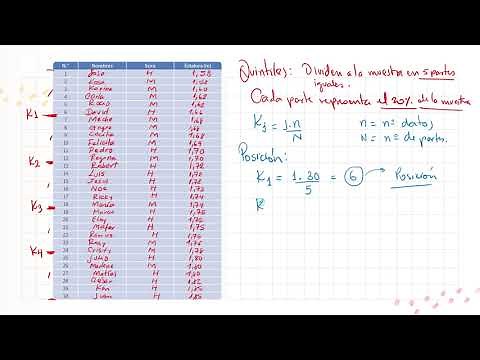 N.° Nombres Sexo Estatura (m)
1 José H 1,58
2 Rosa M 1,58
3 Karina M 1,60
4 Carla M 1,62
5 Rocío M 1,65
K1
6 David H 1,66
7 Meche M 1,68
8 M 1,68
9 M 1,68
10 Felicita M 1,69
11 Pedro H 1,70
K2
12 Regina M 1,70
13 Robert H 1,72
14 Luis H 1,72
15 H 1,72
16 Noe H 1,73
17 Ricky H 1,74
K3
18 María M 1,74
19 H 1,75
20 H 1,75
21 H 1,75
22 H 1,76
23 Rosy M 1,76
K4
24 Cristy M 1,78
25 Julio H 1,80
26 M 1,80
27 Matías H 1,80
28 H 1,82
29 Ken H 1,85
30 Juan H 1,85
Quintiles: Dividen a la muestra en 5 partes
iguales.
Cada parte representa el 20% de la muestra
Kj = j.n / N n = n° datos
N = n° de partes.
Posición:
K1 = 1.30 / 5 = 6 Posición
K